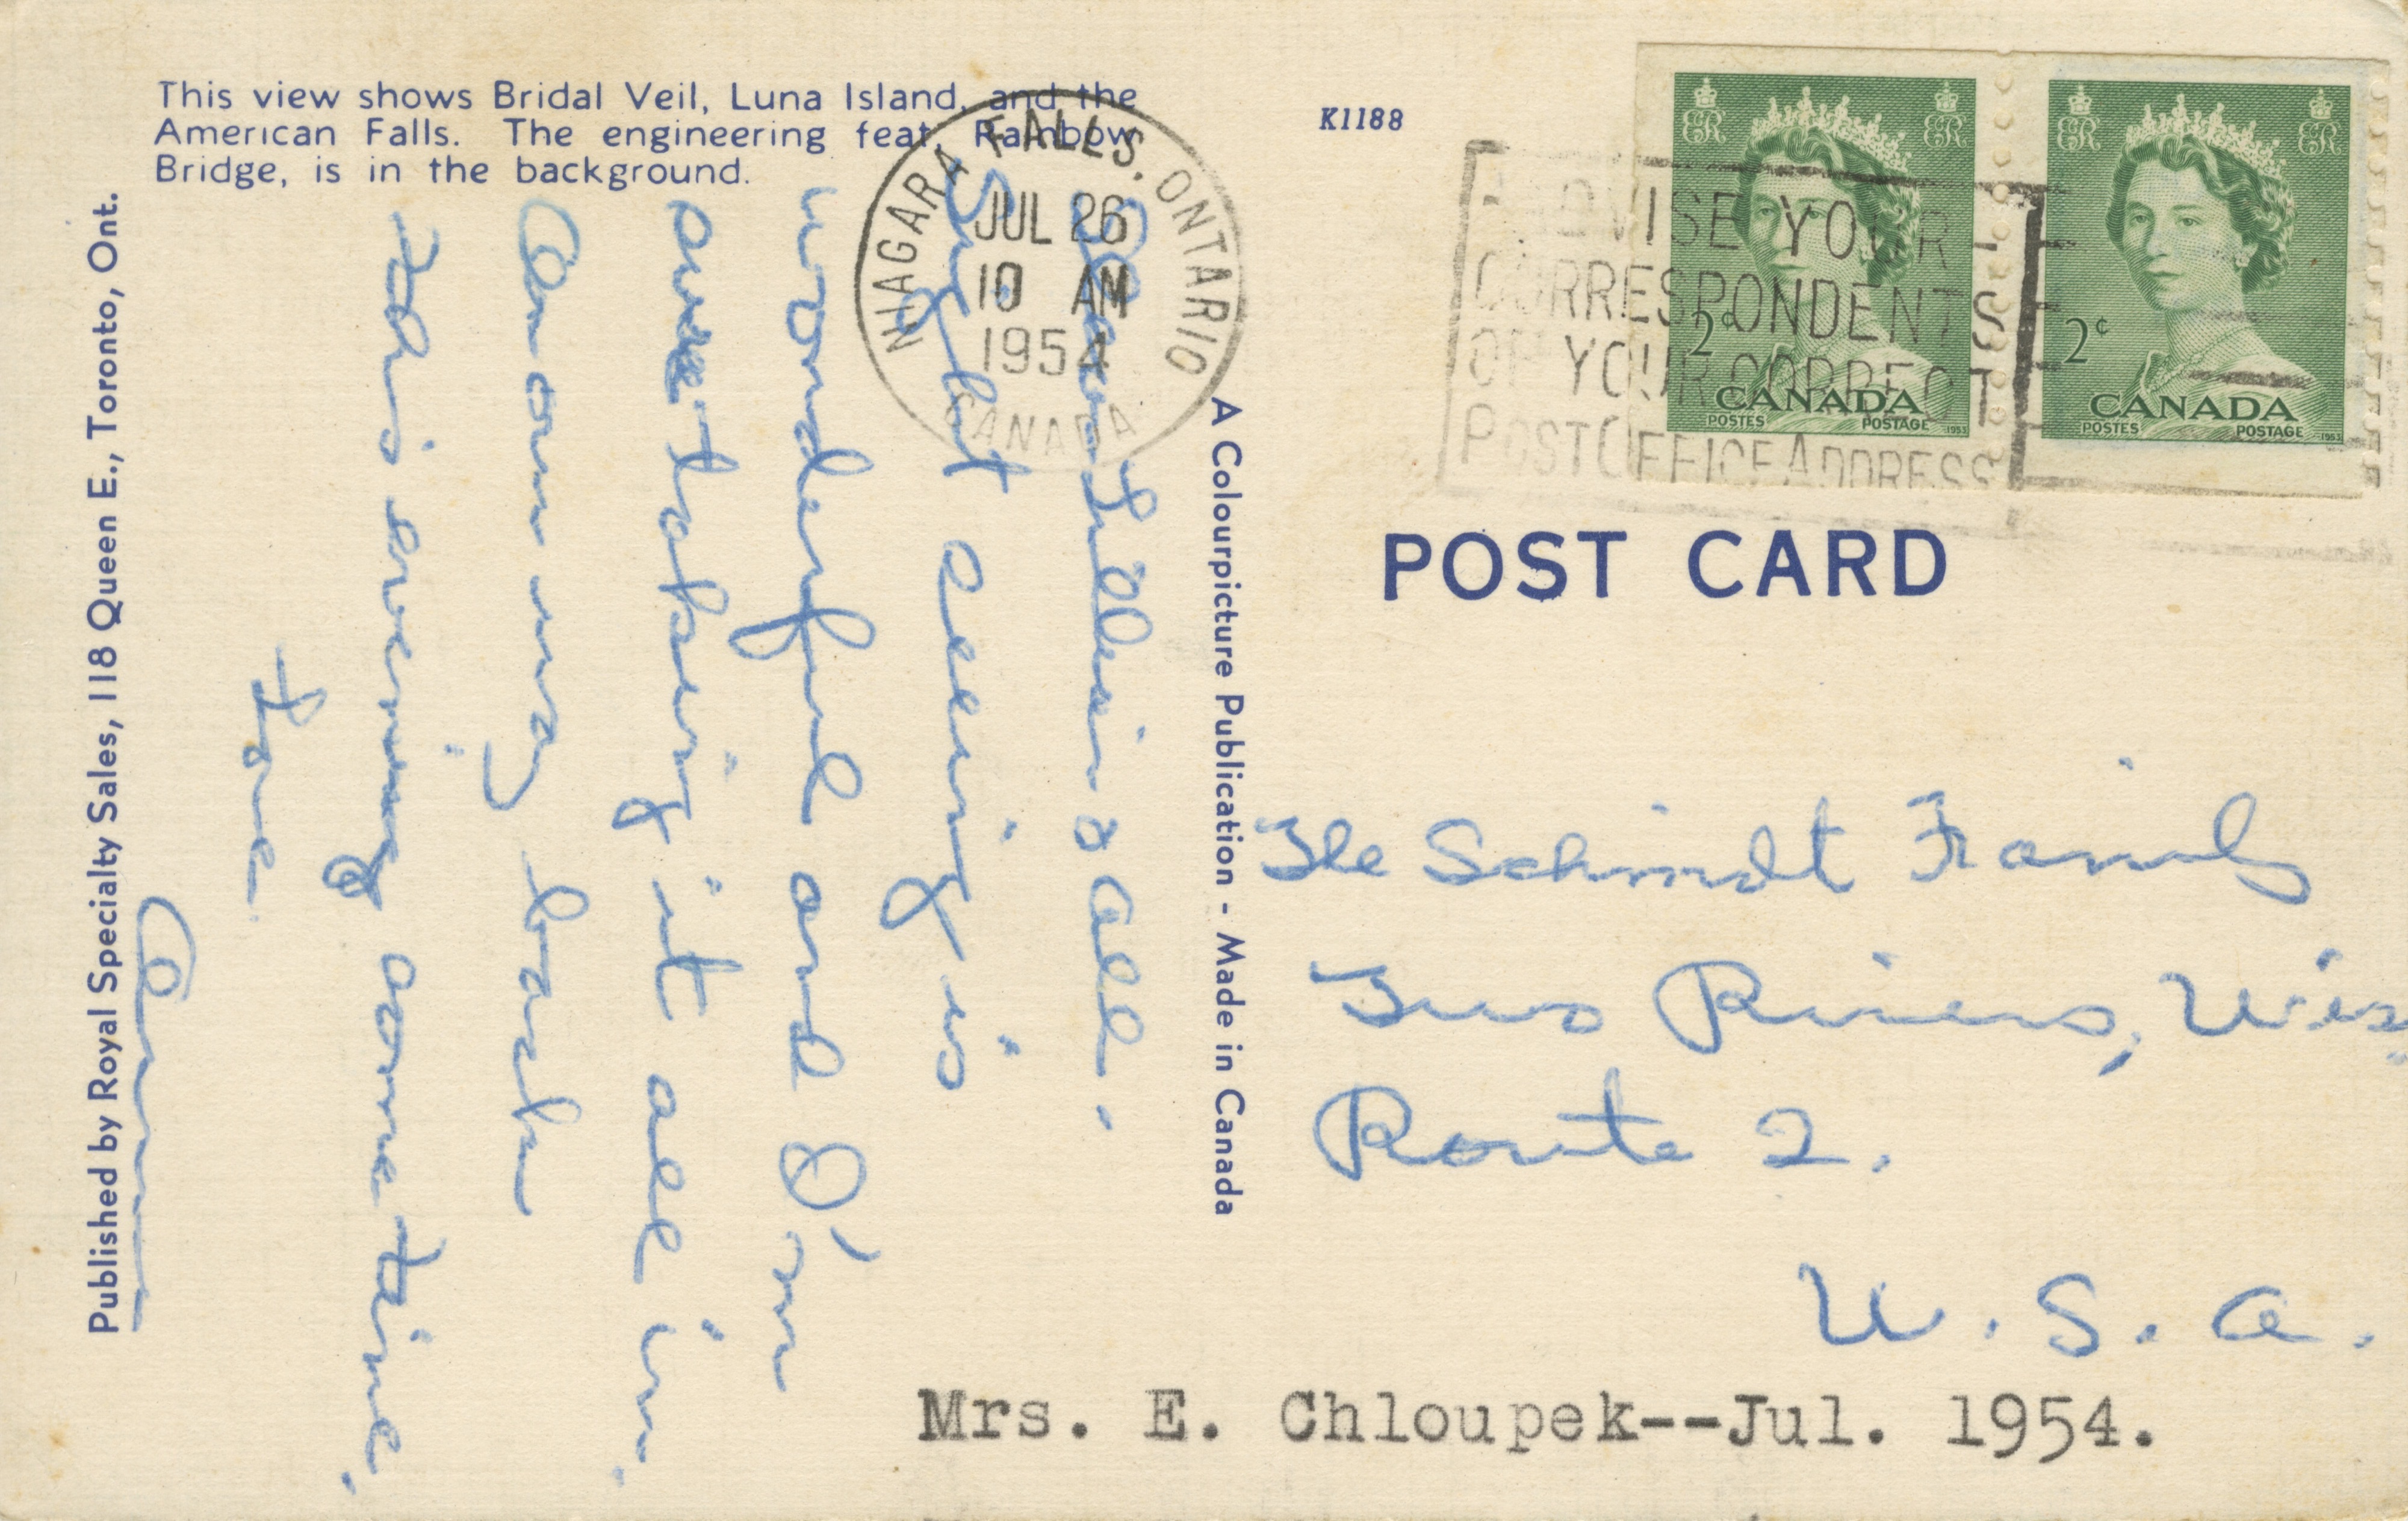 This view shows Bridal Veil, Luna Island, and the
American Falls. The engineering feat, Rainbow
Bridge, is in the background.
K1188
NIAGARA FALLS, ONTARIO
JUL 26
10 AM
1954
CANADA
ADVISE YOUR
CORRESPONDENTS
OF YOUR CORRECT
POST OFFICE ADDRESS
2¢
CANADA
POSTES POSTAGE
1953
2¢
CANADA
POSTES POSTAGE
1953
Published by Royal Specialty Sales, 118 Queen E., Toronto, Ont.
Dear Lillian & all.
Sight seeing is
wonderful and I'm
taking it all in.
Am on my back
this evening some time.
Love
A Colourpicture Publication - Made in Canada
POST CARD
The Schmidt Family
Two Rivers, Wis.
Route 2.
U. S. A.
Mrs. E. Chloupek--Jul. 1954.